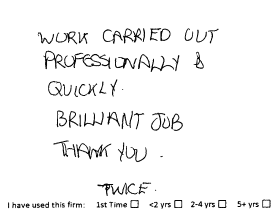 WORK CARRIED OUT
PROFESSIONALLY &
QUICKLY.
BRILLIANT JOB
THANK YOU.
TWICE.
I have used this firm: 1st Time ☐ <2 yrs ☐ 2-4 yrs ☐ 5+ yrs ☐